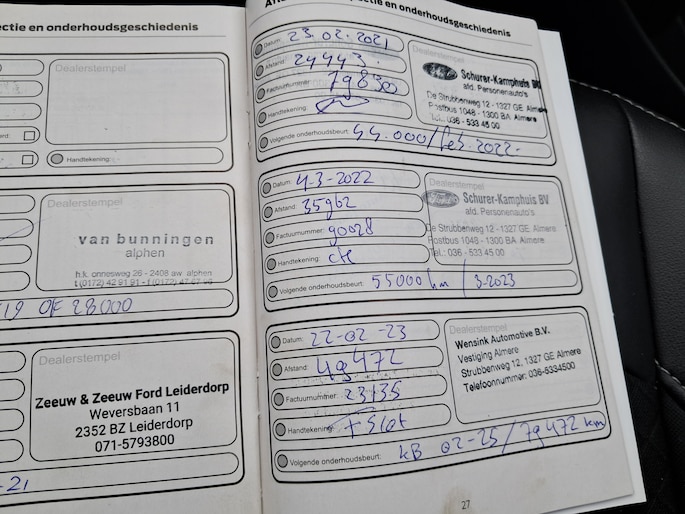 ectie en onderhoudsgeschiedenis
Dealerstempel
Handtekening:
Dealerstempel
van bunningen
alphen
h.k. onnesweg 26 - 2408 aw alphen
t (0172) 42 91 91 -
19 OF 28000
Dealerstempel
Zeeuw & Zeeuw Ford Leiderdorp
Weversbaan 11
2352 BZ Leiderdorp
071-5793800
-21
ectie en onderhoudsgeschiedenis
Datum: 23.02.2021
Afstand: 24443.
Factuurnummer: 79830
Handtekening:
Volgende onderhoudsbeurt: 44.000/feb.2022.
Dealerstempel
Schurer-Kamphuis BV
afd. Personenauto's
De Strubbenweg 12 - 1327 GE Almere
Postbus 1048 - 1300 BA Almere
Tel.: 036 - 533 45 00
Datum: 4-3-2022
Afstand: 35962
Factuurnummer: 90028
Handtekening:
Volgende onderhoudsbeurt: 55000 km / 3-2023
Dealerstempel
Schurer-Kamphuis BV
afd. Personenauto's
De Strubbenweg 12 - 1327 GE Almere
Postbus 1048 - 1300 BA Almere
Tel.: 036 - 533 45 00
Datum: 22-02-23
Afstand: 49472
Factuurnummer: 23135
Handtekening:
Volgende onderhoudsbeurt: KB 02-25/79472 km
Dealerstempel
Wensink Automotive B.V.
Vestiging Almere
Strubbenweg 12, 1327 GE Almere
Telefoonnummer: 036-5334500
27